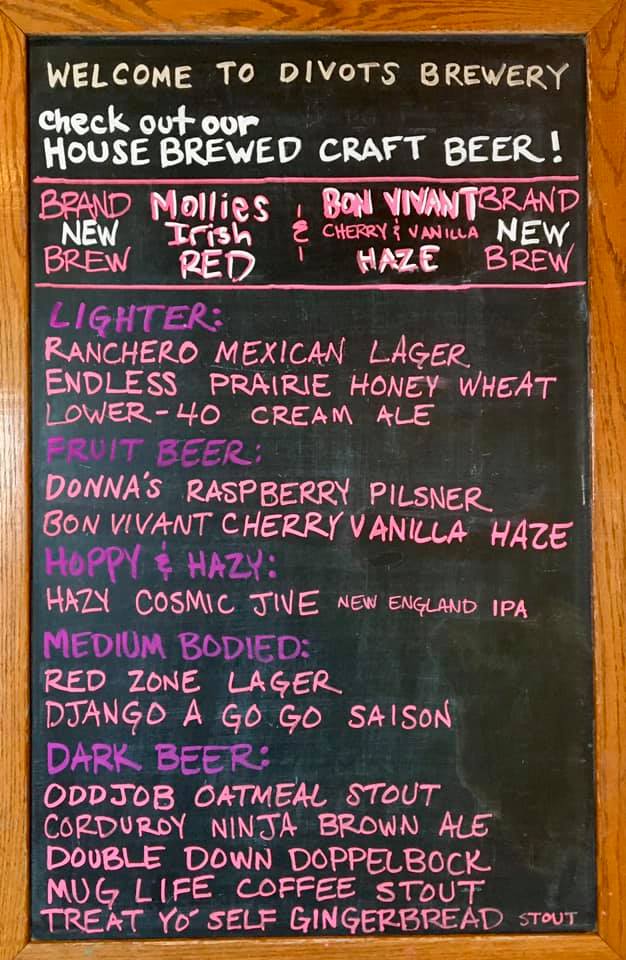 WELCOME TO DIVOTS BREWERY
check out our
HOUSE BREWED CRAFT BEER!
BRAND NEW BREW
Mollies Irish RED
&
BON VIVANT CHERRY & VANILLA HAZE
BRAND NEW BREW
LIGHTER:
RANCHERO MEXICAN LAGER
ENDLESS PRAIRIE HONEY WHEAT
LOWER-40 CREAM ALE
FRUIT BEER:
DONNA'S RASPBERRY PILSNER
BON VIVANT CHERRY VANILLA HAZE
HOPPY & HAZY:
HAZY COSMIC JIVE NEW ENGLAND IPA
MEDIUM BODIED:
RED ZONE LAGER
DJANGO A GO GO SAISON
DARK BEER:
ODDJOB OATMEAL STOUT
CORDUROY NINJA BROWN ALE
DOUBLE DOWN DOPPELBOCK
MUG LIFE COFFEE STOUT
TREAT YO' SELF GINGERBREAD STOUT